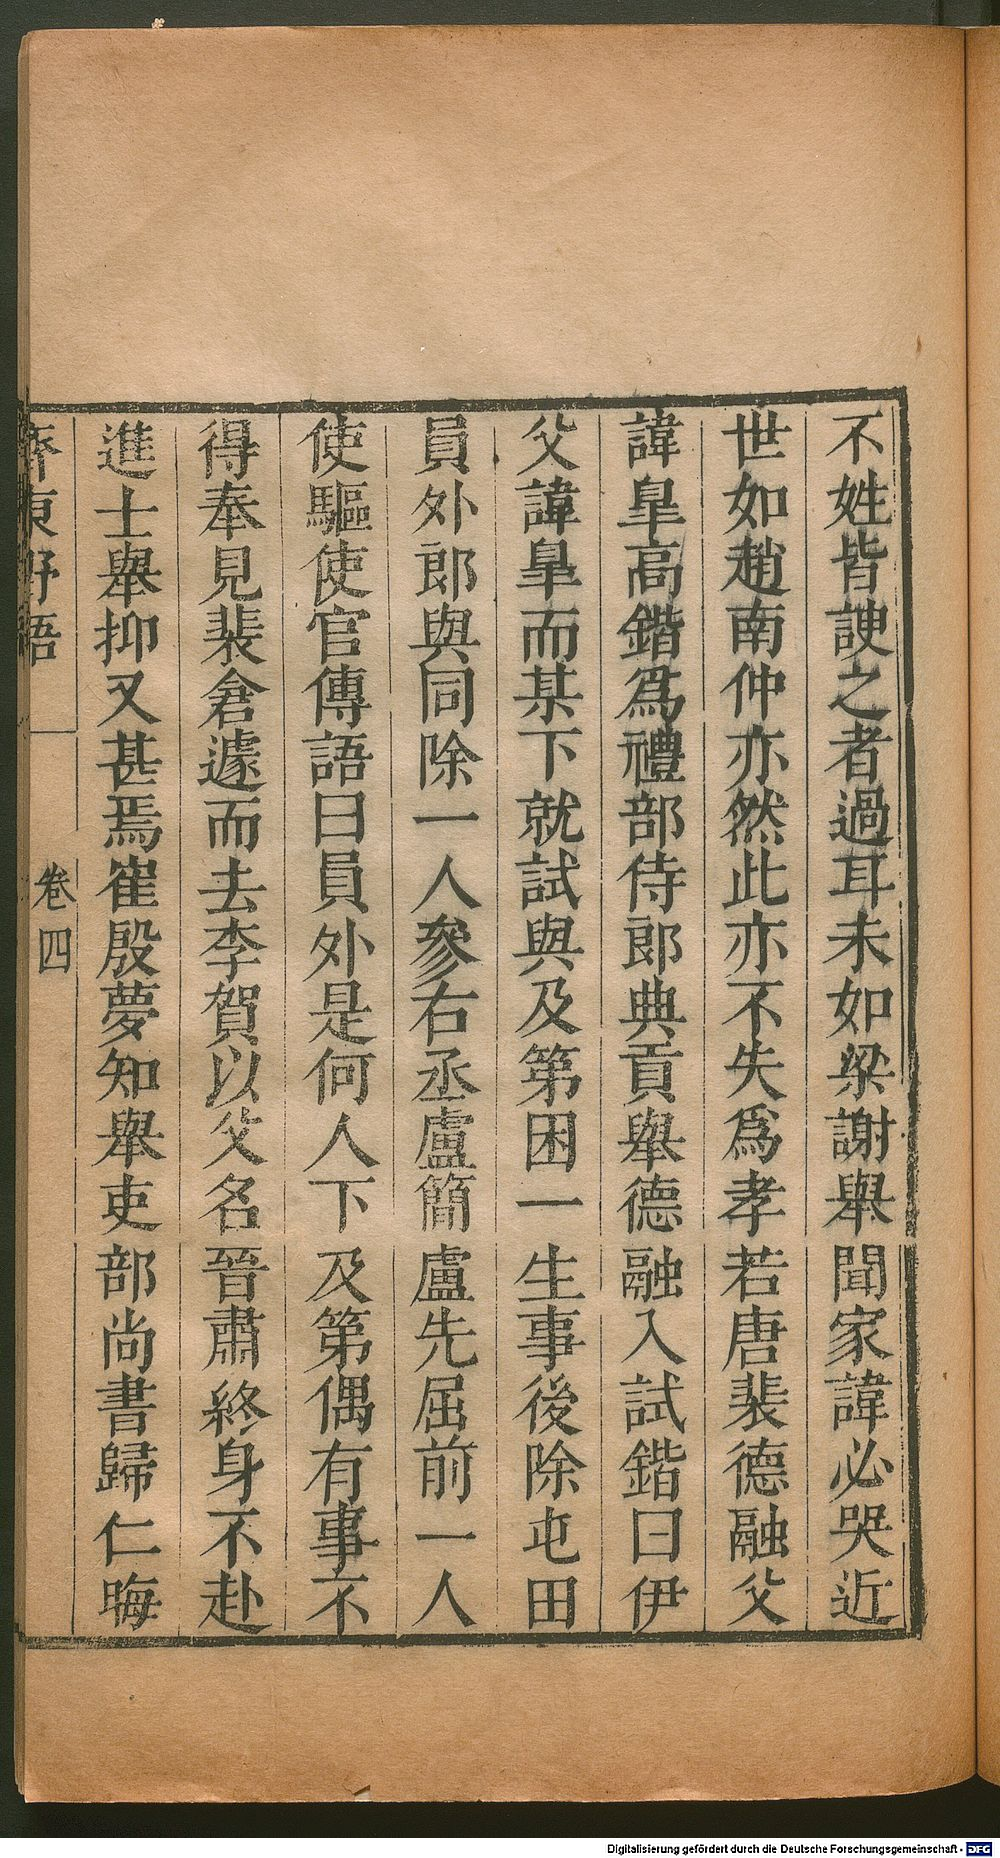 不姓皆諛之者過耳未如梁謝舉聞家諱必哭近
世如趙南仲亦然此亦不失爲孝若唐裴德融父
諱臯高鍇爲禮部侍郎典貢舉德融入試鍇曰伊
父諱臯而某下就試與及第困一生事後除屯田
員外郎與同除一人參右丞盧簡盧先屈前一人
使驅使官傳語曰員外是何人下及第偶有事不
得奉見裴倉遽而去李賀以父名晉肅終身不赴
進士舉抑又甚焉崔殷夢知舉吏部尚書歸仁晦
齊東野語
卷四
Digitalisierung gefördert durch die Deutsche Forschungsgemeinschaft - DFG